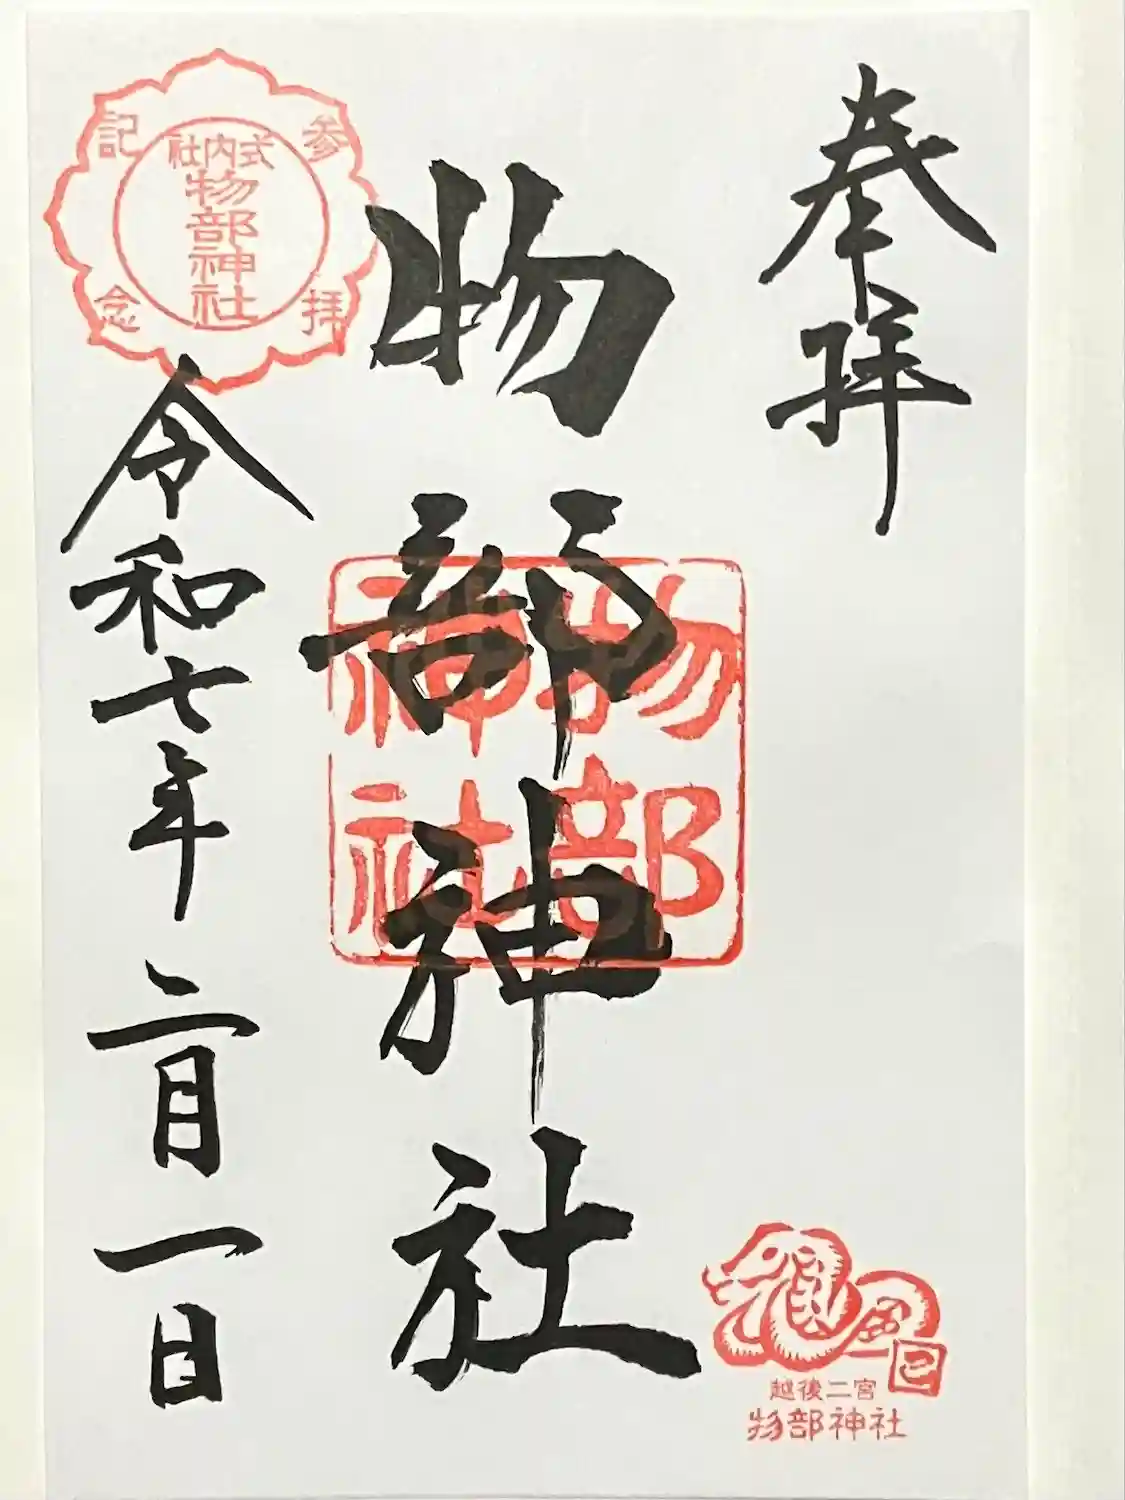 奉拝
物部神社
令和七年二月一日
参拝記念
式内社
物部神社
物部
神社
巳
越後二宮
物部神社